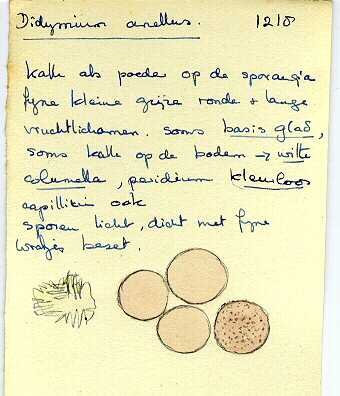 Didymium anellus. 1218
kalk als poeder op de sporangia
fyne kleine grijze ronde + lange
vruchtlichamen. soms basis glad,
soms kalk op de bodem → witte
columella, peridium kleurloos
capillitium ook
sporen licht, dicht met fyne
wratjes bezet.